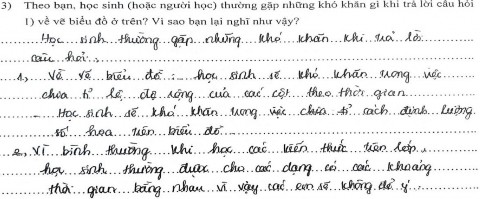 3) Theo bạn, học sinh (hoặc người học) thường gặp những khó khăn gì khi trả lời câu hỏi
1) về vẽ biểu đồ ở trên? Vì sao bạn lại nghĩ như vậy?
Học sinh thường gặp những khó khăn khi trả lời
câu hỏi:
1, Về vẽ biểu đồ: học sinh sẽ khó khăn trong việc
chia tỉ lệ độ rộng của các cột theo thời gian
Học sinh sẽ khó khăn trong việc chia tỉ cách định lượng
số hoa trên biểu đồ
2, Vì bình thường khi học các kiến thức trên lớp
học sinh thường được cho các dạng có các khoảng
thời gian bằng nhau vì vậy các em sẽ không để ý